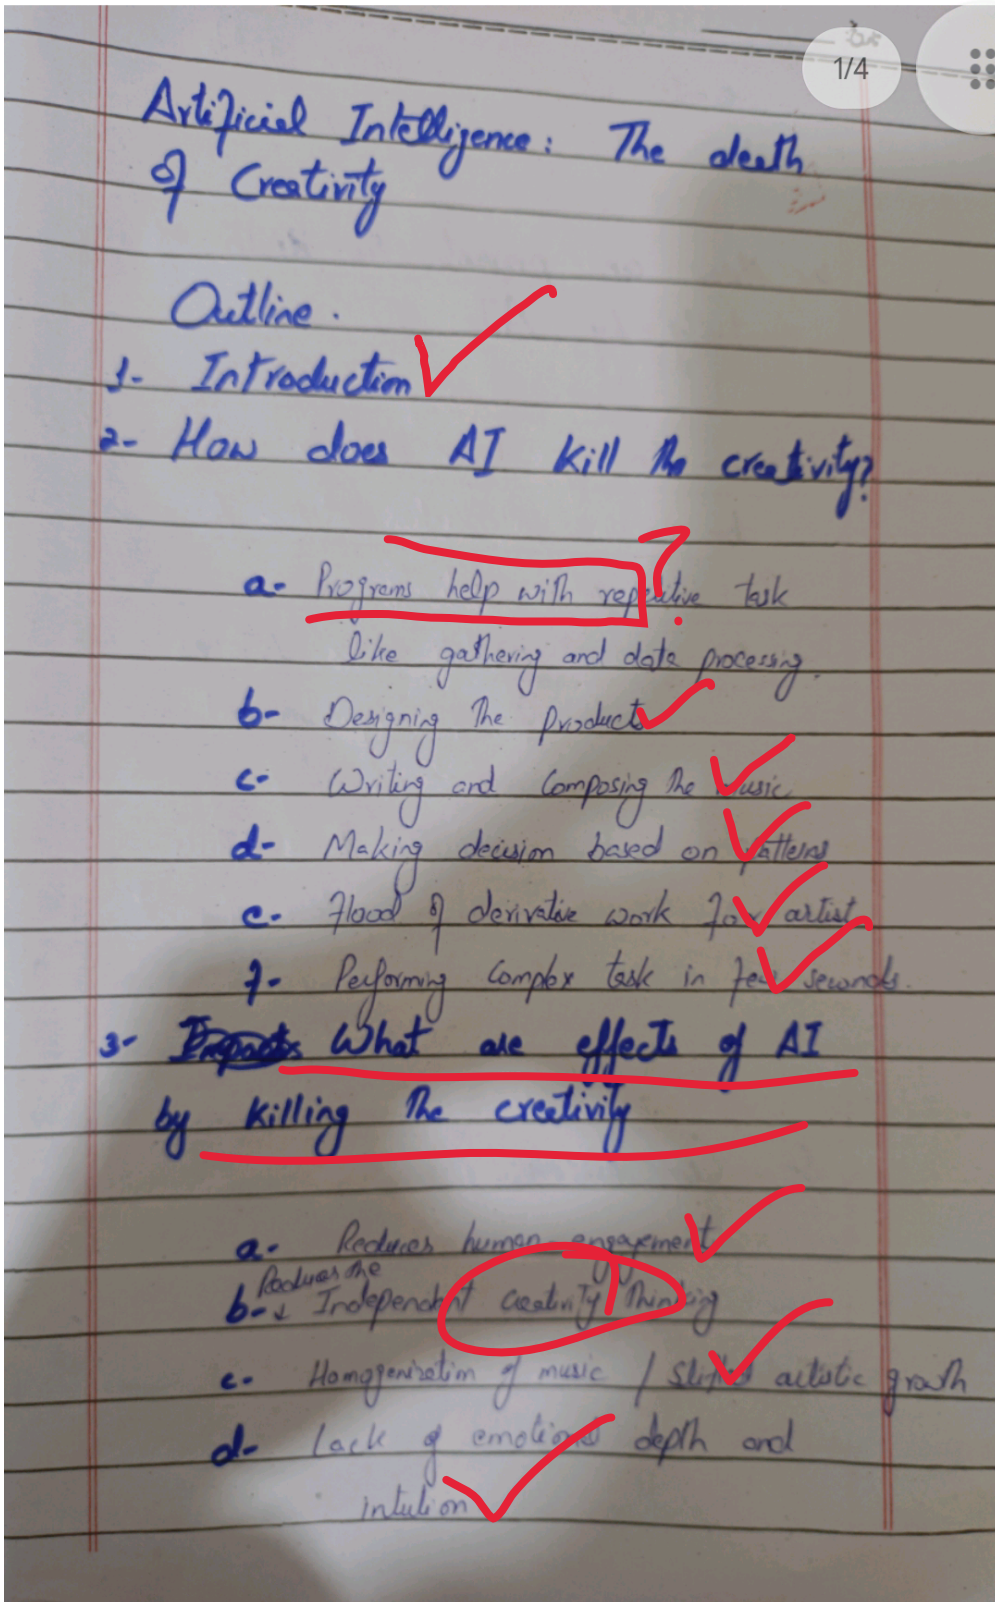 1/4
Artificial Intelligence: The death
of Creativity
Outline.
1- Introduction
2- How does AI kill the creativity?
a- Programs help with repetitive task
like gathering and data processing.
b- Designing the products
c- Writing and Composing the Music
d- Making decision based on patterns
e- Flood of derivative work for artist
f- Performing Complex task in few seconds.
3- Impacts What are effects of AI
by killing the creativity
a- Reduces human engagement
Reduces the
b- Independent creativity/Thinking
c- Homogenization of music / Stifled artistic growth
d- lack of emotional depth and
intution